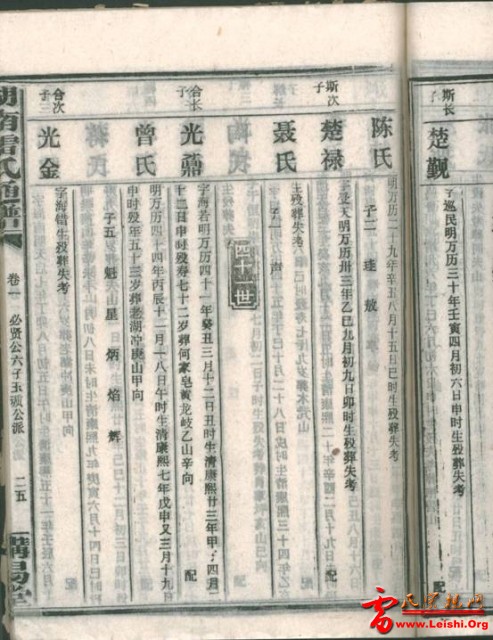 斯长
子
楚觐
字巡民明万历三十年壬寅四月初六日申时生殁葬失考
配
陈氏
明万历二十九年辛丑八月十五日巳时生殁葬失考
子二 琏 敖
斯次
子
楚禄
字受天明万历卅三年乙巳九月初九日卯时生殁葬失考
配
聂氏
生殁葬失考
子一 声
四十二世
合长
子
光鼒
字海若明万历四十一年癸丑三月十二日丑时生清康熙廿三年甲
四月二
十二日申时殁寿七十二岁葬何家皂黄龙岐乙山辛向
配
曾氏
明万历四十四年丙辰十一月一八日午时生清康熙七年戊申又三月十九日
申时殁年五十三岁葬老湖冲庚山甲向
子五 魁 星 炳 焰 辉
合次
子三
光金
字海错生殁葬失考
湖南雷氏通谱
卷一
必贤公六子玉
公派
二五
讲易堂
雷氏宗亲网
www.Leishi.Org